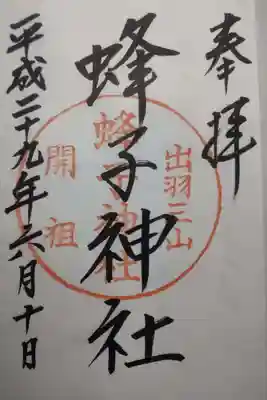 奉拝
蜂子神社
出羽三山
蜂子神社
開祖
平成二十九年六月十日